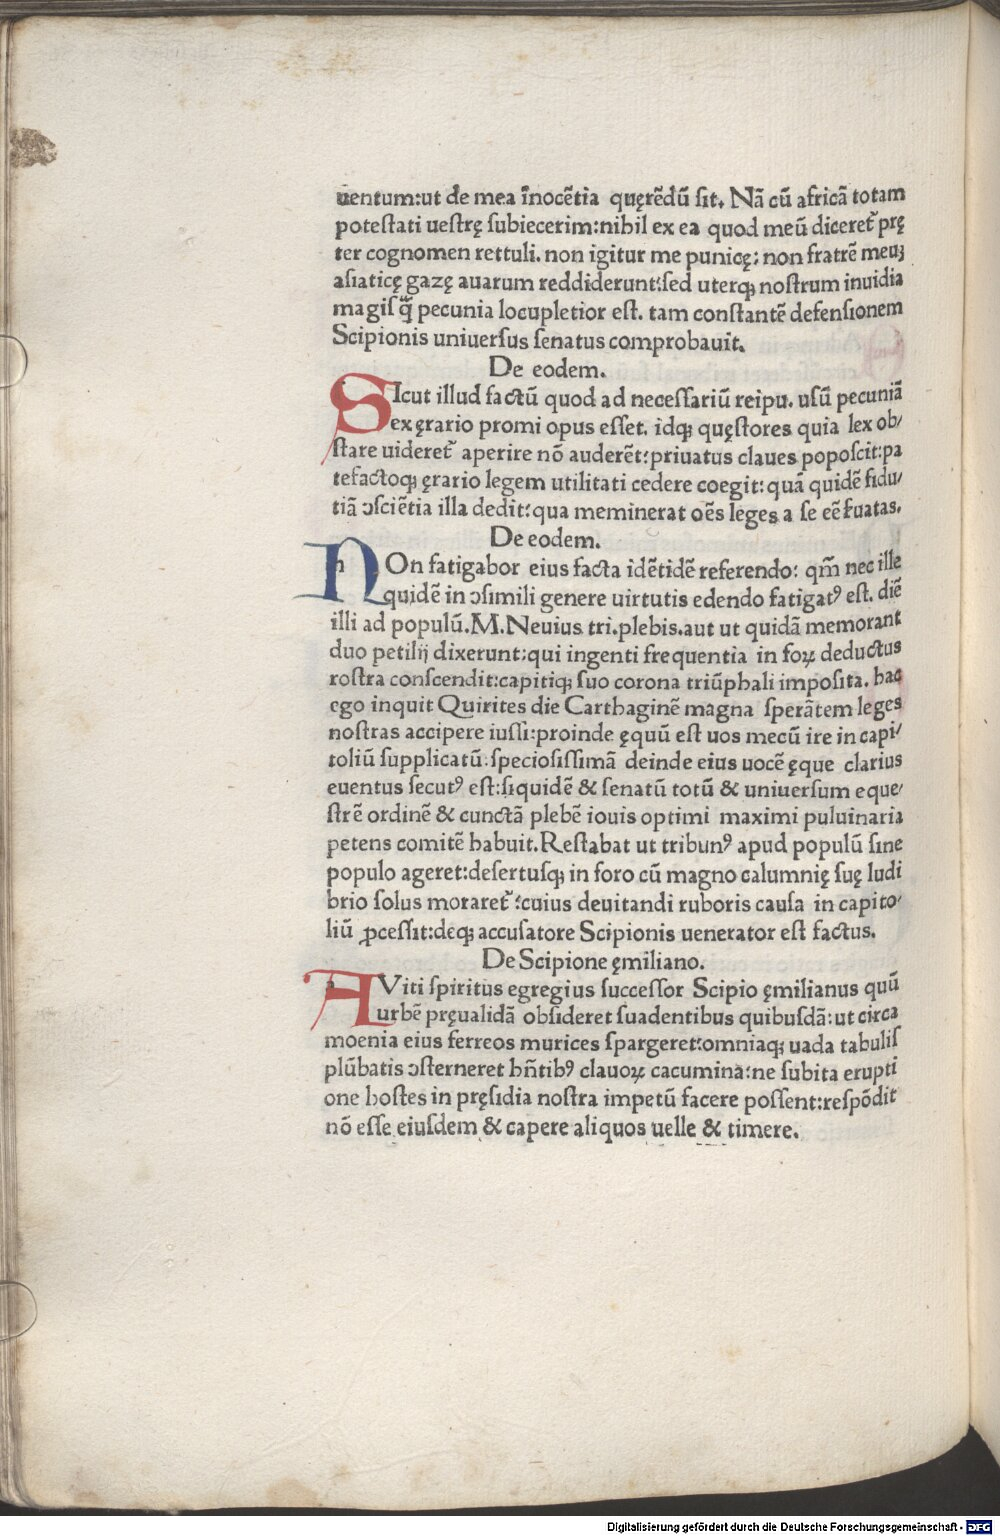 uentum:ut de mea īnocētia quęrēdū sit. Nā cū africā totam
potestati uestrę subiecerim:nihil ex ea quod meū diceret᷑ prę
ter cognomen rettuli. non igitur me punicę: non fratrē meuꝫ
asiaticę gazę auarum reddiderunt:sed uterqꝫ nostrum inuidia
magis q̄ pecunia locupletior est. tam constantē defensionem
Scipionis uniuersus senatus comprobauit.
De eodem.
SIcut illud factū quod ad necessariū reipu. usū pecuniā
ex ęrario promi opus esset. idqꝫ quęstores quia lex ob/
stare uideret᷑ aperire nō auderēt:priuatus claues poposcit:pa
tefactoqꝫ ęrario legem utilitati cedere coegit:quā quidē fidu/
tiā ↄsciētia illa dedit:qua meminerat oēs leges a se eē ẜuatas.
De eodem.
NOn fatigabor eius facta idētidē referendo: qm̄ nec ille
quidē in ↄsimili genere uirtutis edendo fatigatꝰ est. diē
illi ad populū.M.Neuius tri.plebis.aut ut quidā memorant
duo petilij dixerunt:qui ingenti frequentia in foꝝ deductus
rostra conscendit:capitiqꝫ suo corona triūphali imposita. hac
ego inquit Quirites die Carthaginē magna sperātem leges
nostras accipere iussi:proinde ęquū est uos mecū ire in capi/
toliū supplicatū:speciosissimā deinde eius uocē ęque clarius
euentus secutꝰ est:siquidē & senatū totū & uniuersum eque/
strē ordinē & cunctā plebē iouis optimi maximi puluinaria
petens comitē habuit.Restabat ut tribunꝰ apud populū sine
populo ageret:desertusqꝫ in foro cū magno calumnię suę ludi
brio solus moraret᷑:cuius deuitandi ruboris causa in capito/
liū ꝓcessit:deqꝫ accusatore Scipionis uenerator est factus.
De Scipione ęmiliano.
AViti spiritus egregius successor Scipio ęmilianus quū
urbē pręualidā obsideret suadentibus quibusdā:ut circa
moenia eius ferreos murices spargeret:omniaqꝫ uada tabulis
plūbatis ↄsterneret hn̄tibꝰ clauoꝝ cacumina:ne subita erupti
one hostes in pręsidia nostra impetū facere possent:respōdit
nō esse eiusdem & capere aliquos uelle & timere.
Digitalisierung gefördert durch die Deutsche Forschungsgemeinschaft - DFG